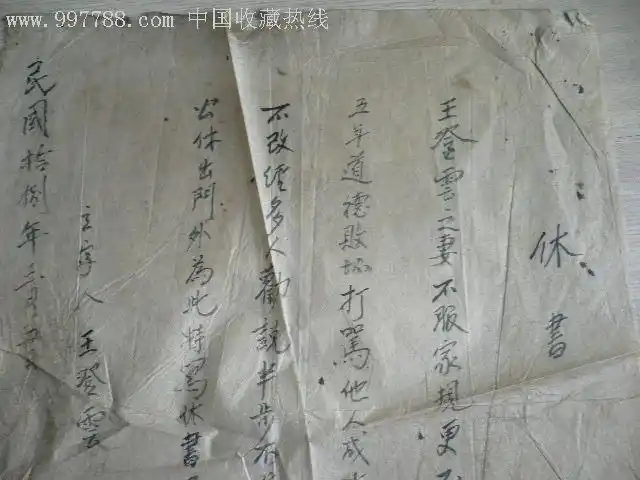 www.997788.com 中国收藏热线
休書
王登雲之妻不服家規更
五年道德敗壞打罵他人成
不改經多人勸說半步不
公休出門外為此特寫休書
立字人 王登雲
民國拾捌年三月